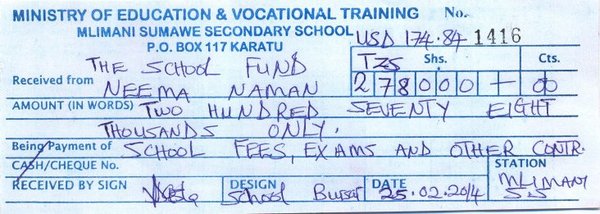 MINISTRY OF EDUCATION & VOCATIONAL TRAINING No.
MLIMANI SUMAWE SECONDARY SCHOOL USD 174.84 1416
P.O. BOX 117 KARATU
THE SCHOOL FUND TZS Shs. Cts.
Received from NEEMA NAMAN 278000 - 00
AMOUNT (IN WORDS) TWO HUNDRED SEVENTY EIGHT
THOUSANDS ONLY.
Being Payment of SCHOOL FEES, EXAMS AND OTHER CONTR.
CASH/CHEQUE No. STATION
RECEIVED BY SIGN DESIGN School Bursar DATE 25.02.2014 MLIMANI
S.S